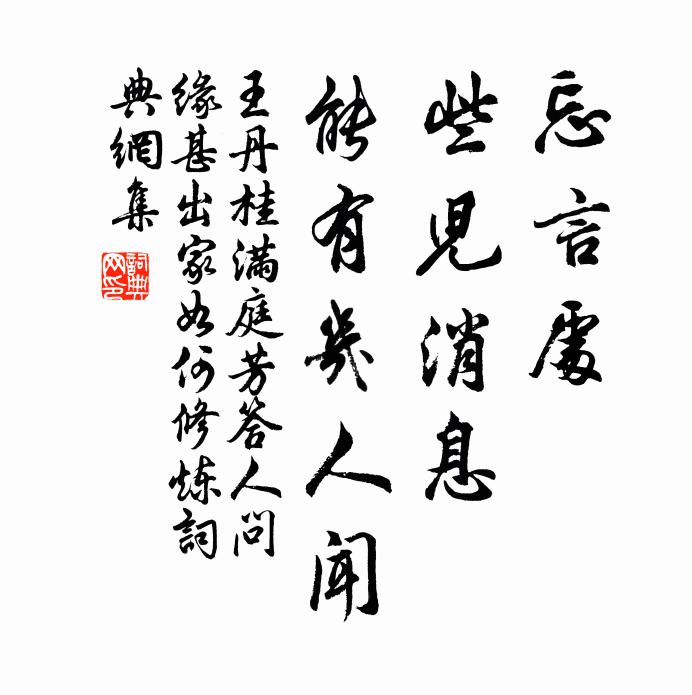 忘言處
些兒消息
能有幾人聞
王丹桂滿庭芳答人問
緣甚出家如何修煉詞
典網集
詞典網印